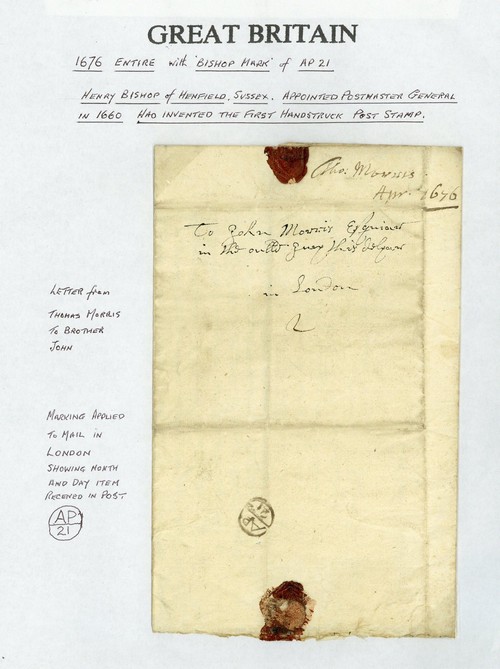 GREAT BRITAIN
1676 ENTIRE with 'BISHOP MARK' of AP 21
HENRY BISHOP OF HENFIELD, SUSSEX. APPOINTED POSTMASTER GENERAL
IN 1660 HAD INVENTED THE FIRST HANDSTRUCK POST STAMP.
Tho: Morris
Apr. 1676
To John Morris Esquior
in the
in London
2
LETTER from
THOMAS MORRIS
TO BROTHER
JOHN
MARKING APPLIED
TO MAIL IN
LONDON
SHOWING MONTH
AND DAY ITEM
RECEIVED IN POST
AP
21
AP
21